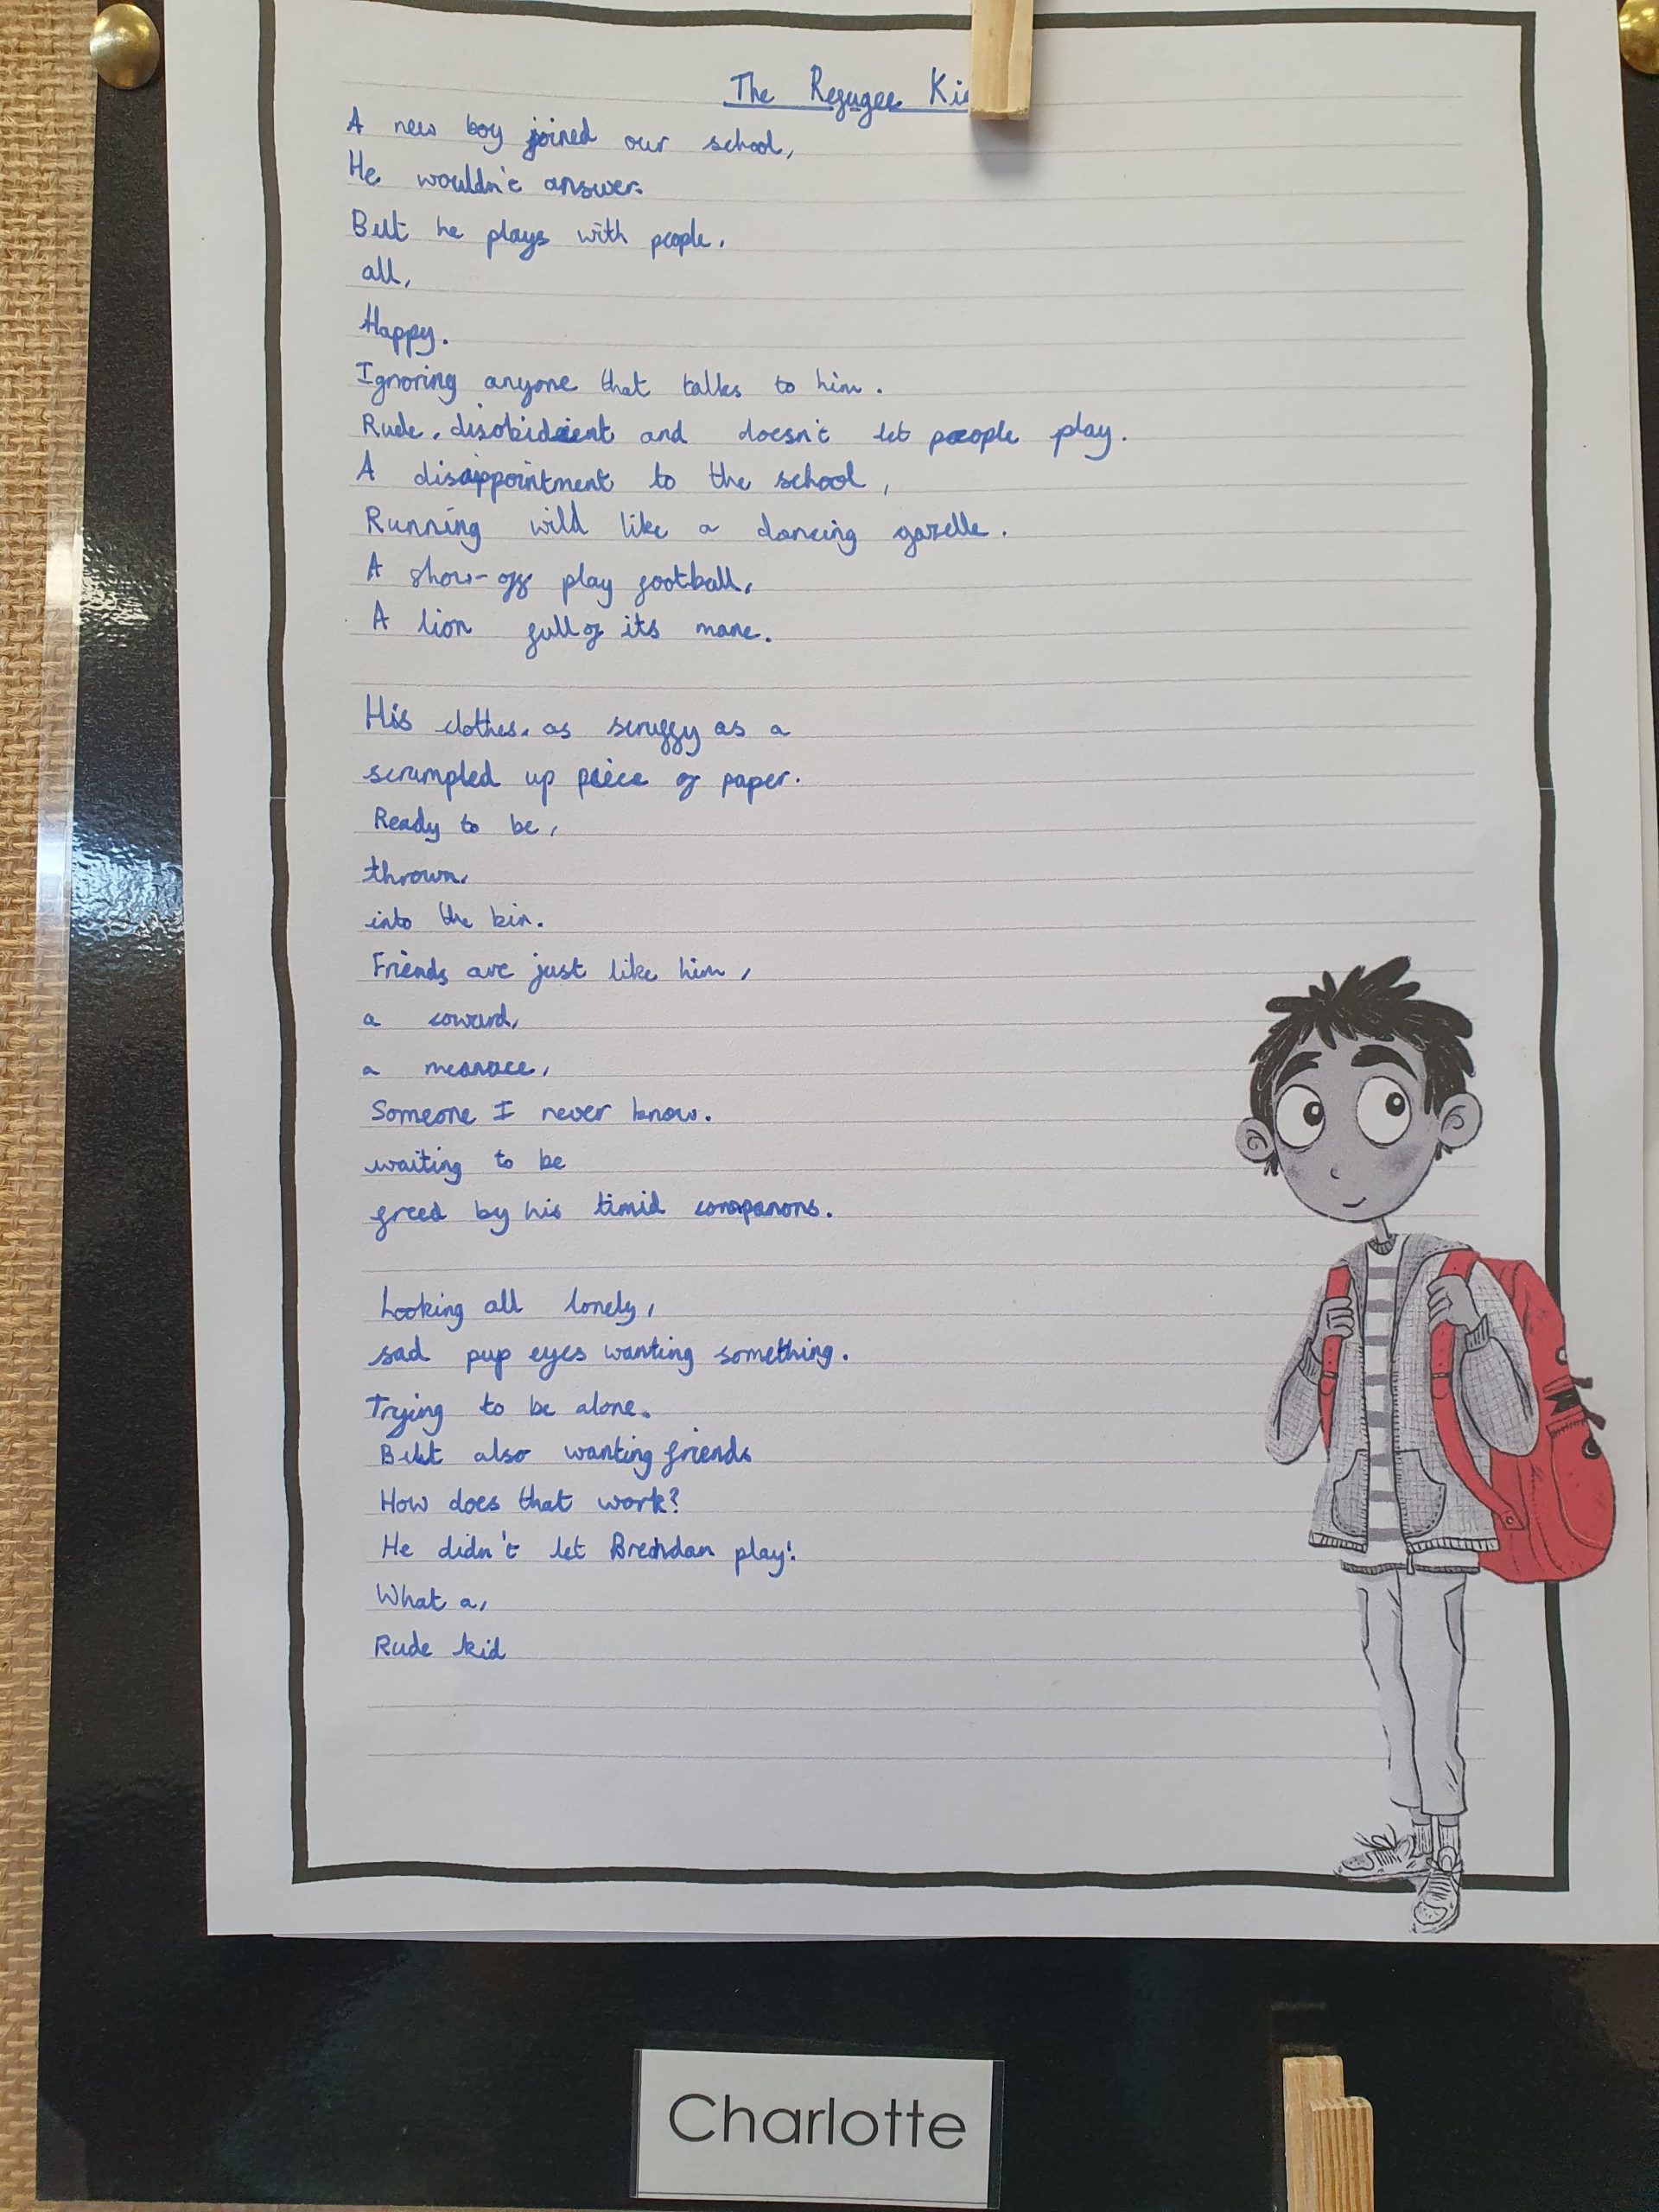 The Refugee Ki
A new boy joined our school,
He wouldn't answer.
But he plays with people.
all,
Happy.
Ignoring anyone that talks to him.
Rude, disobidient and doesn't let people play.
A disappointment to the school,
Running wild like a dancing gazelle.
A show-off play football,
A lion full of its mane.
His clothes, as scruffy as a
scrumpled up piece of paper.
Ready to be,
thrown,
into the bin.
Friends are just like him,
a coward,
a menace,
Someone I never know.
waiting to be
freed by his timid companons.
Looking all lonely,
sad pup eyes wanting something.
Trying to be alone.
But also wanting friends
How does that work?
He didn't let Brendan play!
What a,
Rude kid
Charlotte